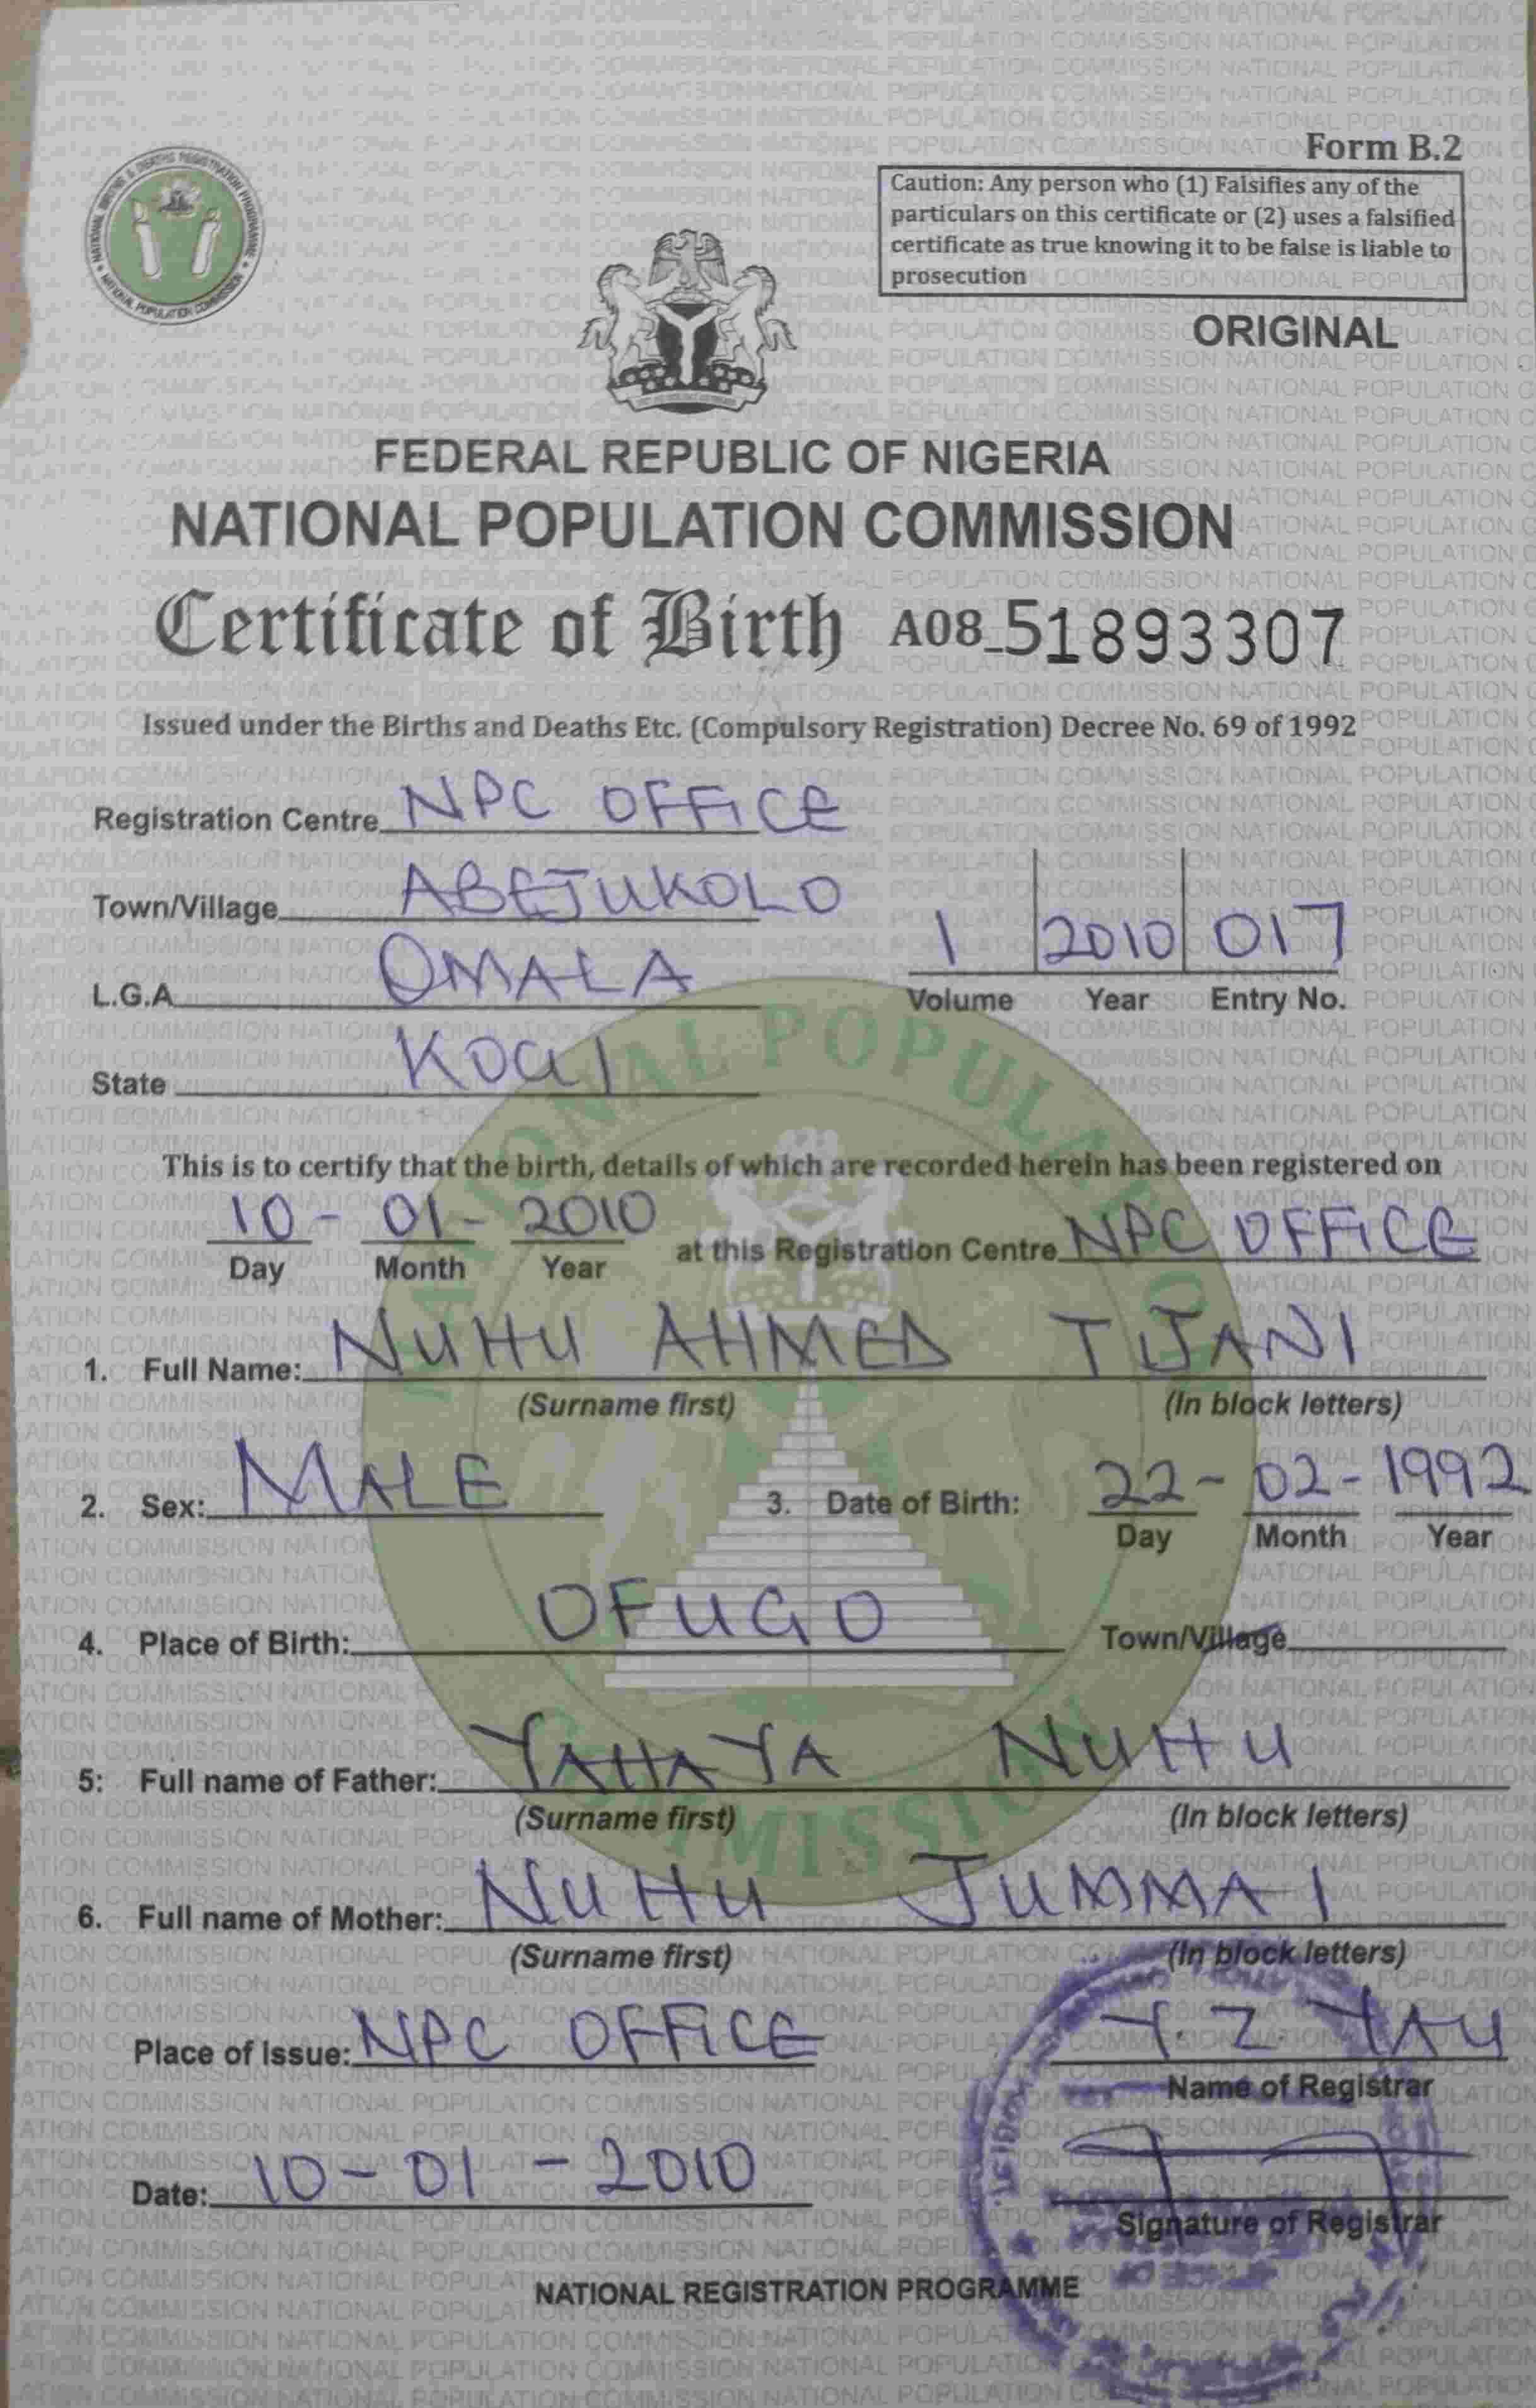 NATIONAL BIRTHS & DEATHS REGISTRATION PROGRAMME
NATIONAL POPULATION COMMISSION
Form B.2
Caution: Any person who (1) Falsifies any of the
particulars on this certificate or (2) uses a falsified
certificate as true knowing it to be false is liable to
prosecution
ORIGINAL
FEDERAL REPUBLIC OF NIGERIA
NATIONAL POPULATION COMMISSION
Certificate of Birth A08-51893307
Issued under the Births and Deaths Etc. (Compulsory Registration) Decree No. 69 of 1992
Registration Centre NPC OFFICE
Town/Village ABEJUKOLO
1 2010 017
L.G.A OMALA
Volume Year Entry No.
State KOGI
This is to certify that the birth, details of which are recorded herein has been registered on
10 - 01 - 2010 at this Registration Centre NPC OFFICE
Day Month Year
1. Full Name: NUHU AHMED TIJANI
(Surname first) (In block letters)
2. Sex: MALE 3. Date of Birth: 22 - 02 - 1992
Day Month Year
4. Place of Birth: OFUGO Town/Village
5: Full name of Father: YAHAYA NUHU
(Surname first) (In block letters)
6. Full name of Mother: NUHU JUMMAI
(Surname first) (In block letters)
Place of Issue: NPC OFFICE Y. Z YAU
Name of Registrar
Date: 10 - 01 - 2010
Signature of Registrar
NATIONAL REGISTRATION PROGRAMME